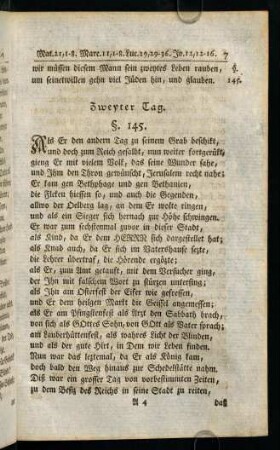 Mat.21,1-8. Marc.11,1-8. Luc.19,29-36. Jo.12,12-16. 7
wir müssen diesem Mann sein zweytes Leben rauben, §.
um seinetwillen gehn viel Jüden hin, und glauben. 145.
Zweyter Tag.
§. 145.
Als Er den andern Tag zu seinem Grab beschikt,
und doch zum Reich gesalbt, nun weiter fortgerükt,
gieng Er mit vielem Volk, das seine Wunder sahe,
und Ihm den Thron gewünscht, Jerusalem recht nahe:
Er kam gen Bethphage und gen Bethanien,
die Fleken hiessen so, und auch die Gegenden,
allwo der Oelberg lag, an dem Er wolte ringen,
und als ein Sieger sich hernach zur Höhe schwingen.
Er war zum sechstenmal zuvor in dieser Stadt,
als Kind, da Er dem HERRN sich dargestellet hat;
als Knab auch, da Er sich im Vatershause sezte,
die Lehrer übertraf, die Hörende ergözte;
als Er, zum Amt getauft, mit dem Versucher ging,
der Ihn mit falschem Wort zu stürzen unterfing;
als Ihn am Osterfest der Eifer wie gefressen,
und Er dem heilgen Markt die Geissel angemessen;
als Er am Pfingstenfest als Arzt den Sabbath brach,
von sich als GOttes Sohn, von GOtt als Vater sprach;
am Lauberhüttenfest, als wahres Licht der Blinden,
und als der gute Hirt, in Dem wir Leben finden.
Nun war das leztemal, da Er als König kam,
doch bald den Weg hinaus zur Schedelstätte nahm.
Diß war ein grosser Tag von vorbestimmten Zeiten,
zu dem Besiz des Reichs in seine Stadt zu reiten,
A 4 daß